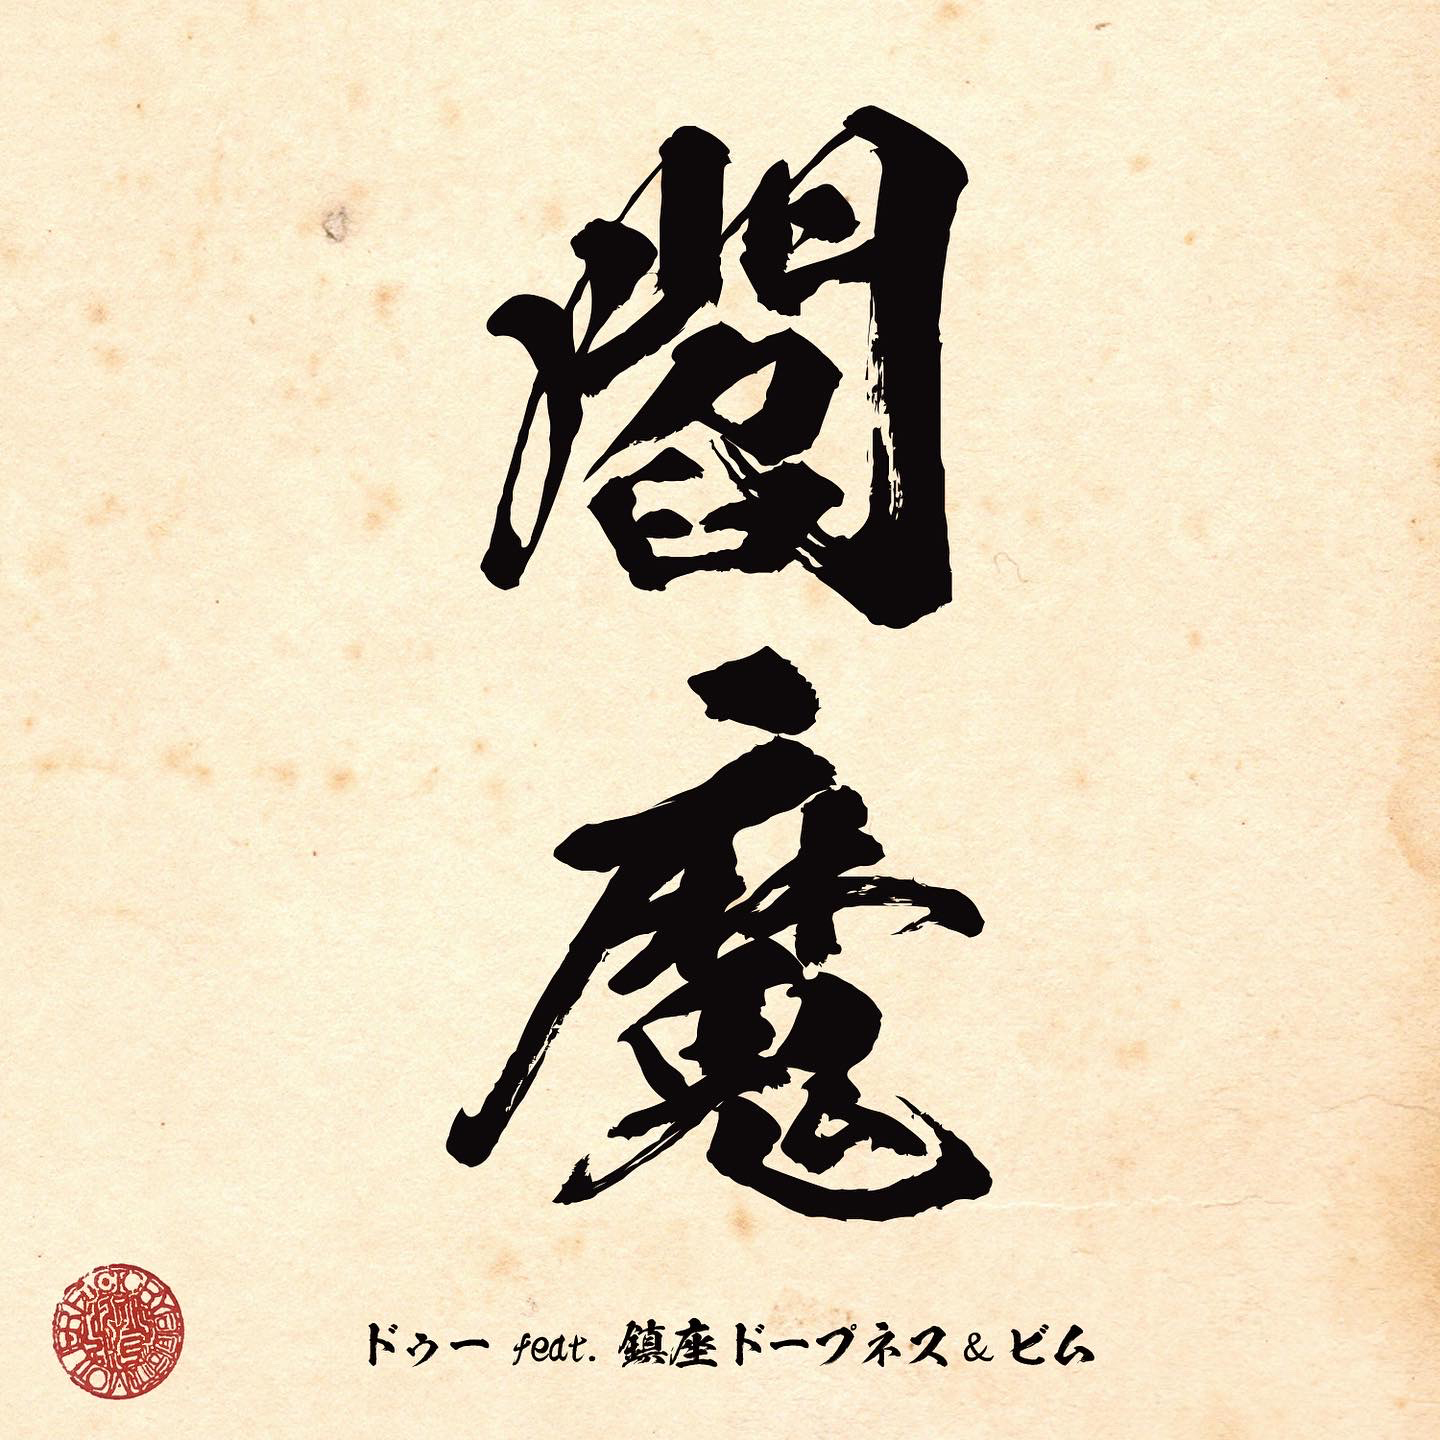 閻魔
ドゥー feat. 鎮座ドープネス & ビム